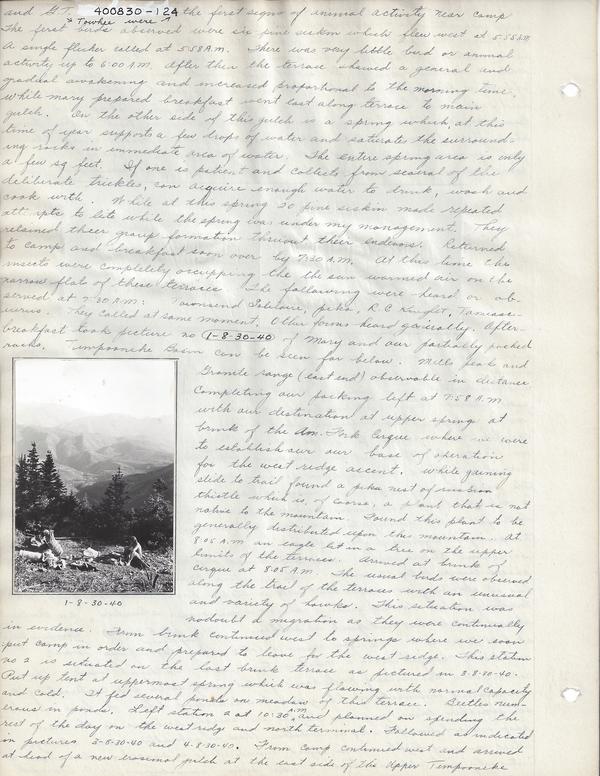 400830-124
and G.T. Towhee were the first signs of animal activity near camp
The first birds observed were six pine siskin which flew west at 5:55 A.M.
A single flicker called at 5:58 A.M. There was very little bird or animal
activity up to 6:00 A.M. after then the terrace showed a general and
gradual awakening and increased proportional to the morning time.
While mary prepared breakfast went east along terrace to main
gulch. On the other side of this gulch is a spring which, at this
time of year supports a few drops of water and saturate the surround-
ing rocks in immediate area of water. The entire spring area is only
a few sq feet. If one is patient and collects from several of the
deliberate trickles, can acquire enough water to drink, wash and
cook with. While at this spring 30 pine siskin made repeated
attempts to lite while the spring was under my management. They
retained their group formation thruout their indeavors. Returned
to camp and breakfast soon over by 7:30 A.M. At this time the
insects were completely occupying the the sun warmed air on the
narrow flats of these terraces. The following were heard or ob-
served at 7:30 A.M: Townsend Solitaire, pika, R.C. Kinglet, Tamiasc-
iurus. They called at same moment. Other forms heard generally. After-
breakfast took picture no 1-8-30-40 of Mary and our partially packed
packs. Timpooneke Basin can be seen far below. Mills peak and
Granite range (east end) observable in distance
Completing our packing left at 7:58 A.M.
with our destination at upper spring at
brink of the Am. Fork Cirque where we were
to establish our our base of operation
for the west ridge ascent. While gaining
slide to trail found a pika nest of russian
thistle which is, of coarse, a plant that is not
native to the mountain. Found this plant to be
generally distributed upon this mountain. At
8:05 A.M an eagle lit in a tree on the upper
limits of the terraces. Arrived at brink of
cirque at 8:05 A.M. The usual birds were observed
along the trail of the terraces with an unusual
and variety of hawks. This situation was
nodoubt a migration as they were continually
1-8-30-40
in evidence. From brink continued west to springs where we soon
put camp in order and prepared to leave for the west ridge. This station
no 2 is situated on the last brink terrace as pictured in 3-8-30-40.
Put up tent at uppermost spring which was flowing with normal capacity
and cold. It fed several ponds on meadow of this terrace. Beetles num-
erous in ponds. Left station 2 at 10:30 A.M. and planned on spending the
rest of the day on the west ridge and north terminal. Followed as indicated
in pictures 3-8-30-40 and 4-8-30-40. From camp continued west and arrived
at head of a new erosional gulch at the east side of the Upper Timpooneke